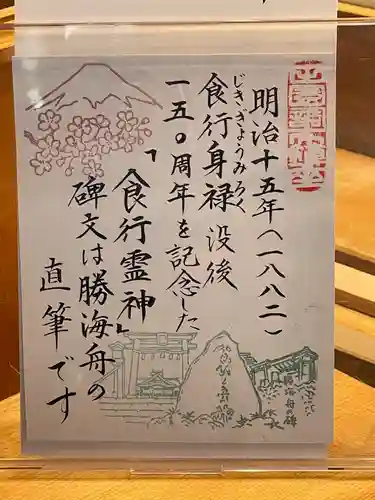 明治十五年（一八八二）
じきぎょうみろく
食行身禄没後
一五〇周年を記念した
「食行霊神」
碑文は勝海舟の
直筆です
勝海舟の碑